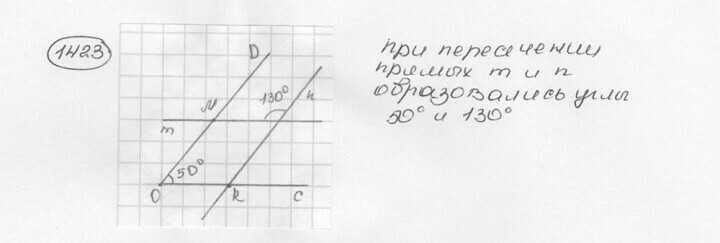 1423
D
130°
n
N
m
50°
O
K
C
при пересечении
прямых m и n
образовались углы
50° и 130°